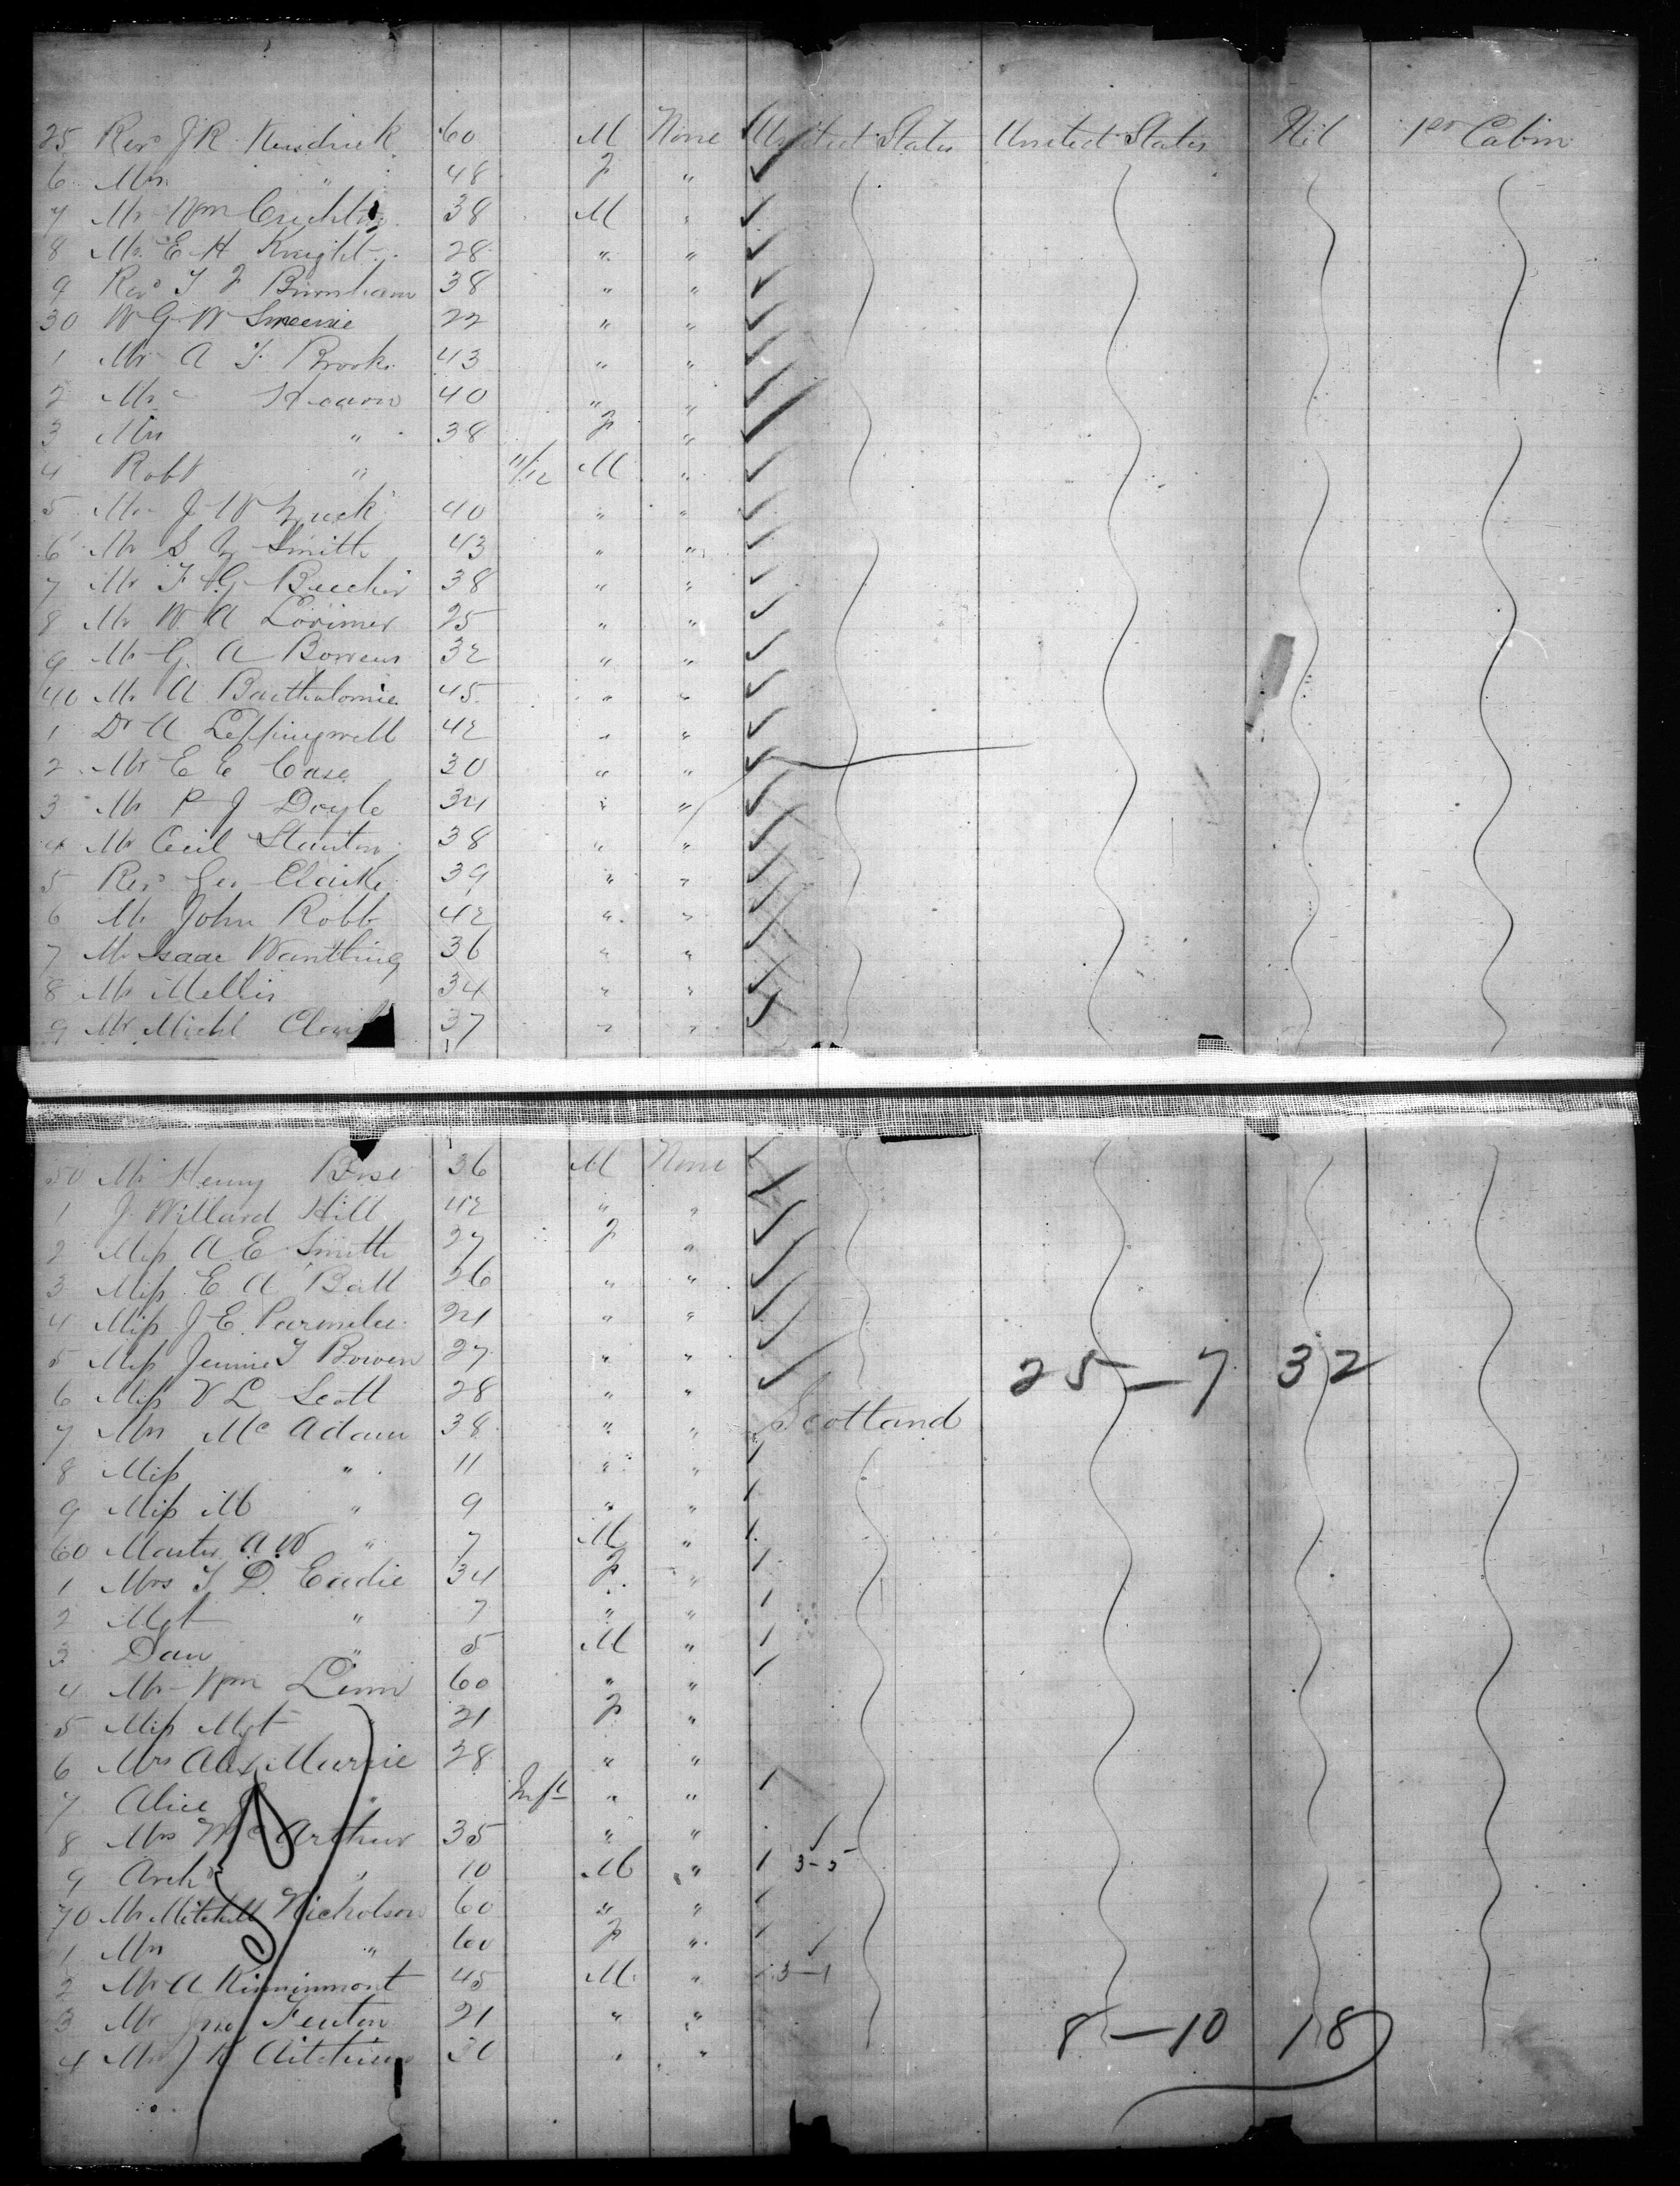 25 Revd J R Kendrick 60 M None United States United States Nil 1st Cabin
6 Mrs " 48 F "
7 Mr Wm Crichton 38 M "
8 Mr E H Knight 28 " "
9 Revd T F Burnham 38 " "
30 W G W Smeenie 22 " "
1 Mr A T Brooks 43 " "
2 Mr Hearn 40 " "
3 Mrs " 38 F "
4 Robt " 11/12 M "
5 Mr J W 40 " "
6 Mr S Smith 43 " "
7 Mr F G Beecher 38 " "
8 Mr W A Lorimer 25 " "
9 Mr G A Bowen 32 " "
40 Mr A Bartholomie 45 " "
1 Dr A Leffingwell 42 " "
2 Mr E E Case 30 " "
3 Mr P J Doyle 34 " "
4 Mr Cecil Stanton 38 " "
5 Revd Geo Clarke 39 " "
6 Mr John Robb 42 " "
7 Mr Isaac Wantling 36 " "
8 Mr Mellis 34 " "
9 Mr Michl 37 " "
50 Mr Henry Bose 36 M None
1 J. Willard Hill 42 " "
2 Miss A E Smith 27 F "
3 Miss E A Ball 26 " "
4 Miss J E Parmelee 24 " "
5 Miss Jennie T Bowen 27 " " 25 — 7 32
6 Miss V L Scott 28 " "
7 Mrs McAdam 38 " " Scotland
8 Miss " 11 " "
9 Miss M " 9 " "
60 Master A W " 7 M "
1 Mrs T D. Eadie 34 F "
2 Mgt " 7 " "
3 Dan " 5 M "
4 Mr Wm Linn 60 " "
5 Miss Mgt " 21 F "
6 Mrs Alex Murrie 28 " "
7 Alice " Inft " "
8 Mrs McArthur 35 " "
9 Archd " 10 M " 3-5
70 Mr Mitchell Nicholson 60 " "
1 Mrs " 60 F "
2 Mr A Kinninmont 45 M " 3-1
3 Mr Jno Fenton 21 " " 8 — 10 18
4 Mr J K 30 " "